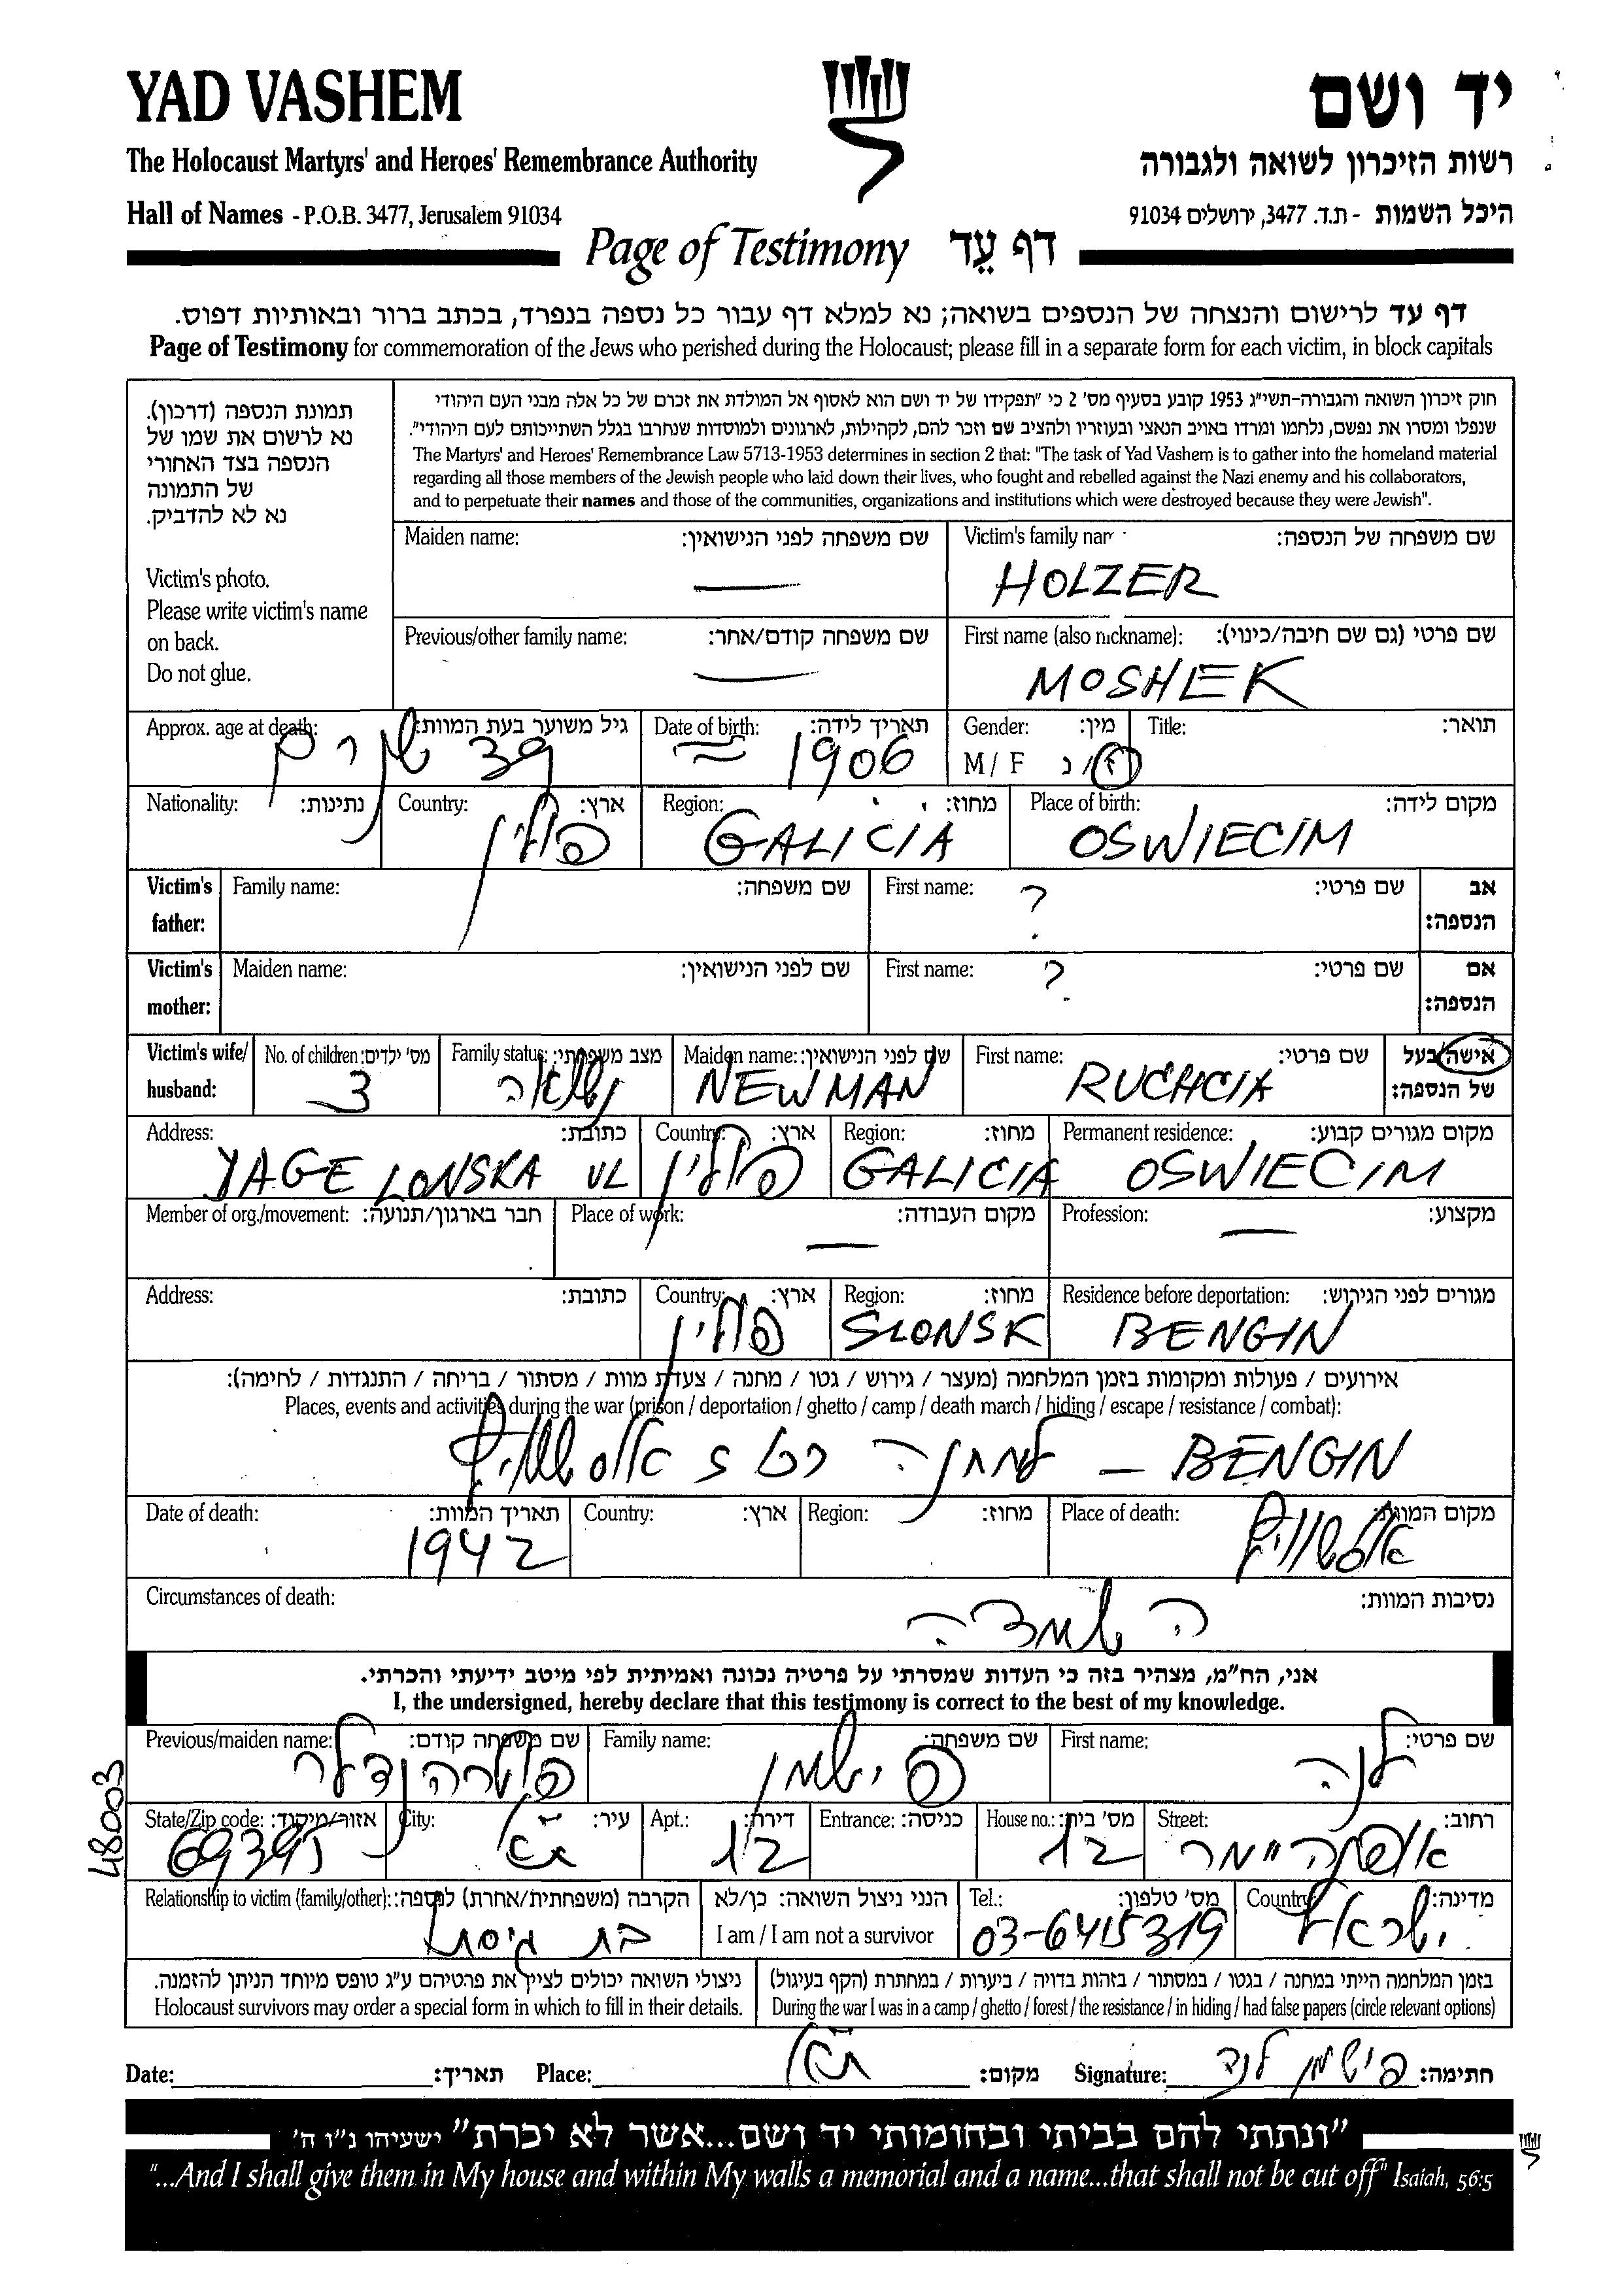 YAD VASHEM
יד ושם
The Holocaust Martyrs' and Heroes' Remembrance Authority
רשות הזיכרון לשואה ולגבורה
Hall of Names - P.O.B. 3477, Jerusalem 91034
היכל השמות - ת.ד. 3477, ירושלים 91034
Page of Testimony דף עֵד
דף עד לרישום והנצחה של הנספים בשואה; נא למלא דף עבור כל נספה בנפרד, בכתב ברור ובאותיות דפוס.
Page of Testimony for commemoration of the Jews who perished during the Holocaust; please fill in a separate form for each victim, in block capitals
תמונת הנספה (דרכון).
נא לרשום את שמו של
הנספה בצד האחורי
של התמונה
נא לא להדביק.
Victim's photo.
Please write victim's name
on back.
Do not glue.
חוק זיכרון השואה והגבורה-תשי"ג 1953 קובע בסעיף מס' 2 כי "תפקידו של יד ושם הוא לאסוף אל המולדת את זכרם של כל אלה מבני העם היהודי
שנפלו ומסרו את נפשם, נלחמו ומרדו באויב הנאצי ובעוזריו ולהציב שם וזכר להם, לקהילות, לארגונים ולמוסדות שנחרבו בגלל השתייכותם לעם היהודי".
The Martyrs' and Heroes' Remembrance Law 5713-1953 determines in section 2 that: "The task of Yad Vashem is to gather into the homeland material
regarding all those members of the Jewish people who laid down their lives, who fought and rebelled against the Nazi enemy and his collaborators,
and to perpetuate their names and those of the communities, organizations and institutions which were destroyed because they were Jewish".
Maiden name: שם משפחה לפני הנישואין: Victim's family nam שם משפחה של הנספה:
— HOLZER
Previous/other family name: שם משפחה קודם/אחר: First name (also nickname): שם פרטי (גם שם חיבה/כינוי):
— MOSHEK
Approx. age at death: גיל משוער בעת המוות: Date of birth: תאריך לידה: Gender: מין: Title: תואר:
39 שנים ≈ 1906 M / F ז/נ
Nationality: נתינות: Country: ארץ: Region: מחוז: Place of birth: מקום לידה:
פולין GALICIA OSWIECIM
Victim's father: Family name: שם משפחה: First name: שם פרטי: אב הנספה:
?
Victim's mother: Maiden name: שם לפני הנישואין: First name: שם פרטי: אם הנספה:
?
Victim's wife/ husband: No. of children: מס' ילדים: Family status: מצב משפחתי: Maiden name: שם לפני הנישואין: First name: שם פרטי: אישה/בעל של הנספה:
3 נשואה NEWMAN RUCHCIA
Address: כתובת: Country: ארץ: Region: מחוז: Permanent residence: מקום מגורים קבוע:
YAGE LONSKA UL פולין GALICIA OSWIECIM
Member of org./movement: חבר בארגון/תנועה: Place of work: מקום העבודה: Profession: מקצוע:
— —
Address: כתובת: Country: ארץ: Region: מחוז: Residence before deportation: מגורים לפני הגירוש:
פולין SLONSK BENGIN
אירועים / פעולות ומקומות בזמן המלחמה (מעצר / גירוש / גטו / מחנה / צעדת מוות / מסתור / בריחה / התנגדות / לחימה):
Places, events and activities during the war (prison / deportation / ghetto / camp / death march / hiding / escape / resistance / combat):
BENGIN — למחנה
Date of death: תאריך המוות: Country: ארץ: Region: מחוז: Place of death: מקום המוות:
1942 אושוויץ
Circumstances of death: נסיבות המוות:
השמדה
אני, הח"מ, מצהיר בזה כי העדות שמסרתי על פרטיה נכונה ואמיתית לפי מיטב ידיעתי והכרתי.
I, the undersigned, hereby declare that this testimony is correct to the best of my knowledge.
Previous/maiden name: שם משפחה קודם: Family name: שם משפחה: First name: שם פרטי:
פישמן לנה
48003
State/Zip code: אזור/מיקוד: City: עיר: Apt.: דירה: Entrance: כניסה: House no.: מס' בית: Street: רחוב:
69395 ת"א 12 12 אופנהיימר
Relationship to victim (family/other): הקרבה (משפחתית/אחרת) לנספה: הנני ניצול השואה: כן/לא Tel.: מס' טלפון: Country: מדינה:
בת גיסתו I am / I am not a survivor 03-6415319 ישראל
ניצולי השואה יכולים לציין את פרטיהם ע"ג טופס מיוחד הניתן להזמנה. בזמן המלחמה הייתי במחנה / בגטו / במסתור / בזהות בדויה / ביערות / במחתרת (הקף בעיגול)
Holocaust survivors may order a special form in which to fill in their details. During the war I was in a camp / ghetto / forest / the resistance / in hiding / had false papers (circle relevant options)
Date: תאריך: Place: ת"א מקום: Signature: פישמן לנה חתימה:
"ונתתי להם בביתי ובחומותי יד ושם...אשר לא יכרת" ישעיהו נ"ו ה'
"...And I shall give them in My house and within My walls a memorial and a name...that shall not be cut off" Isaiah, 56:5